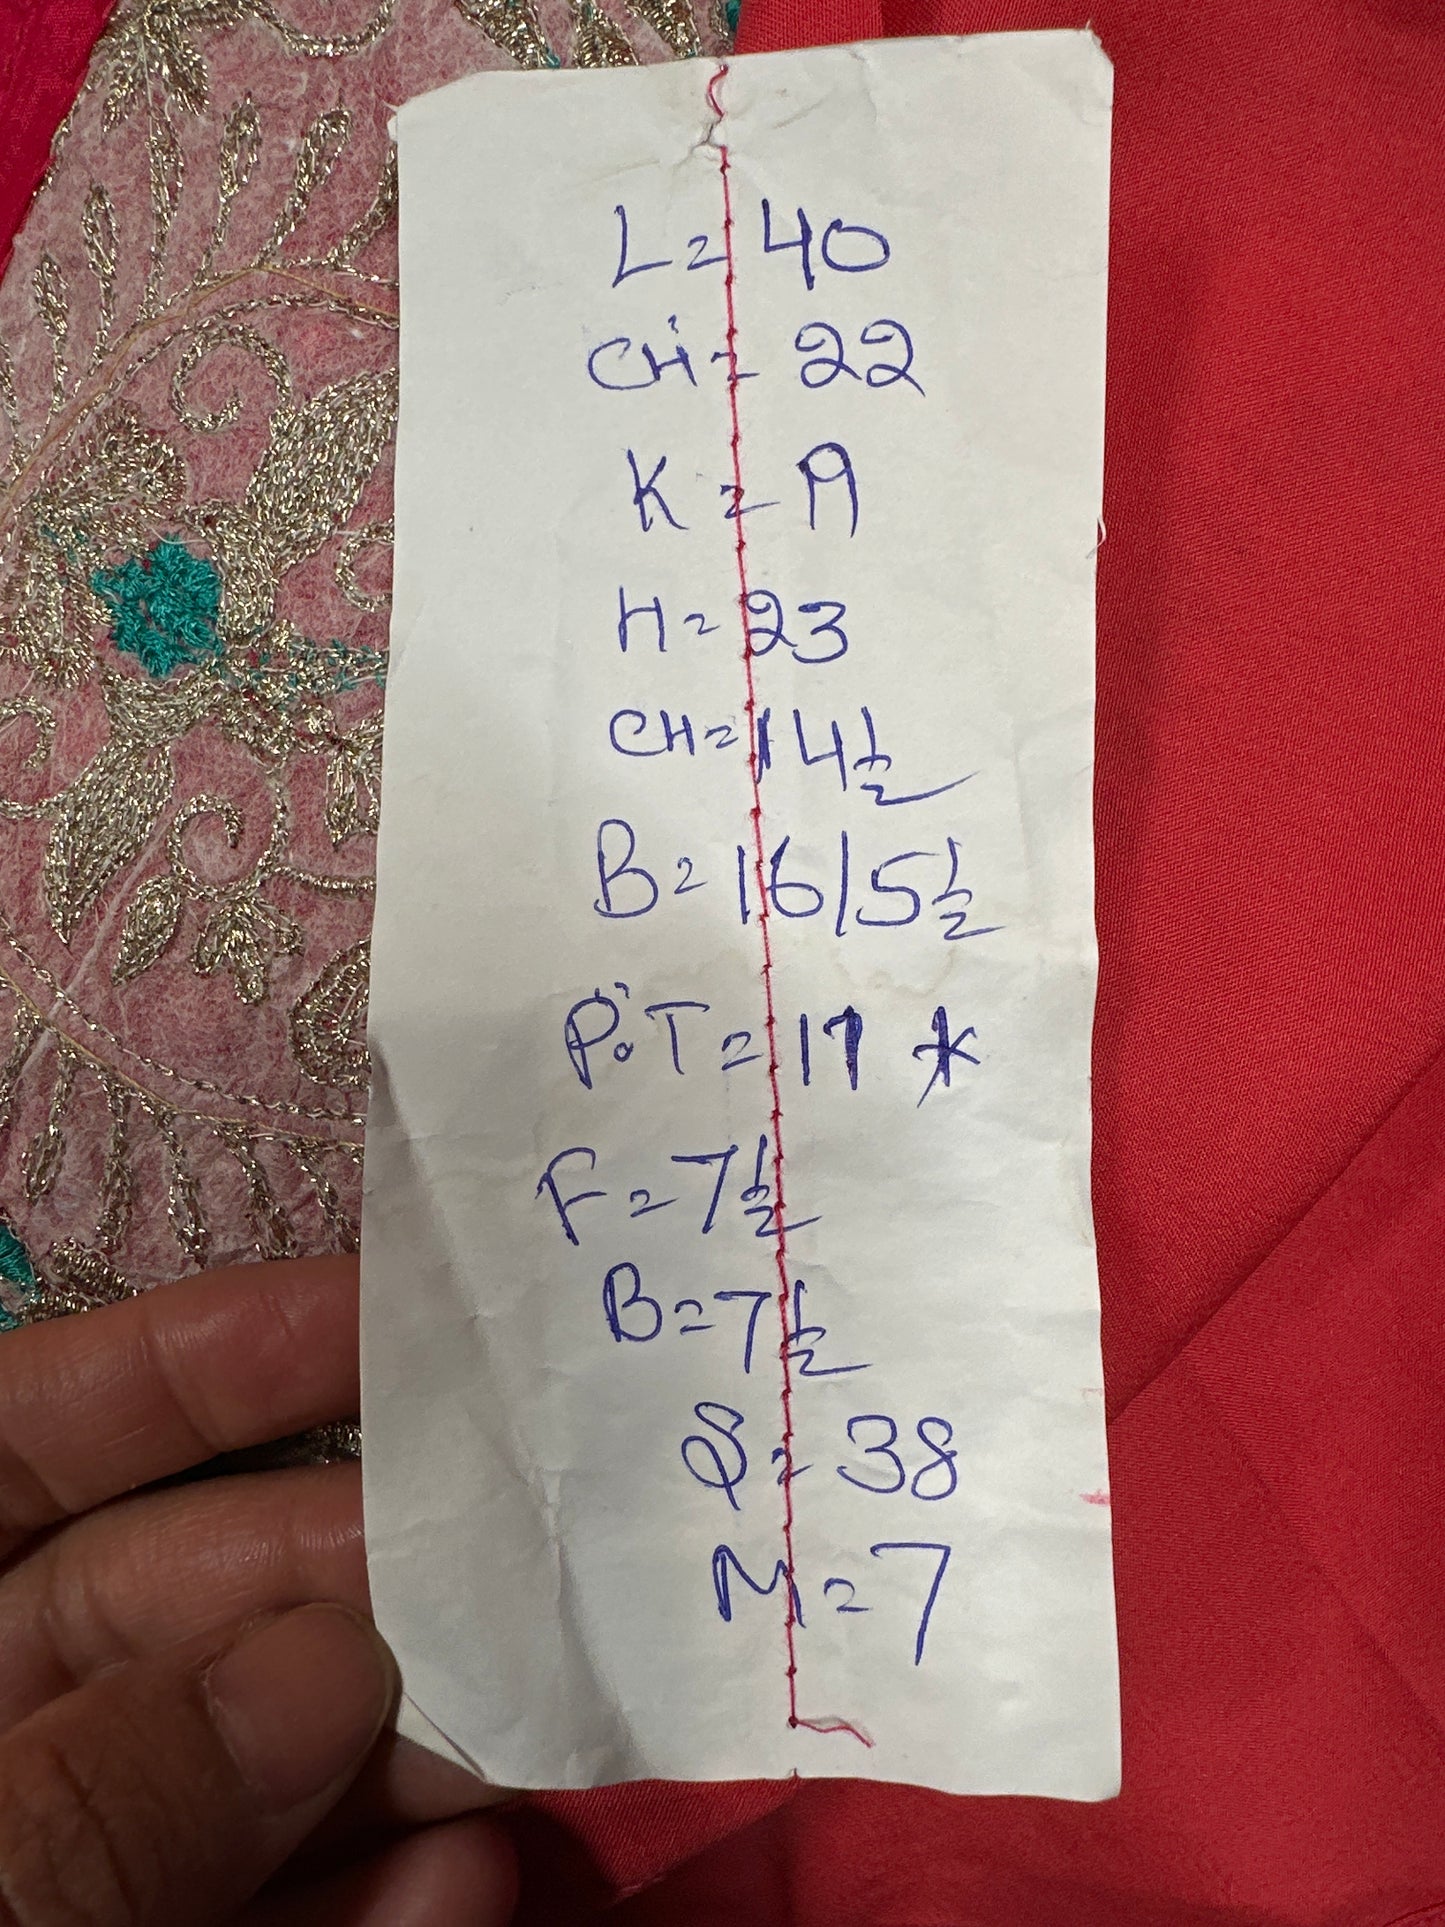 L = 40
CH = 22
K = 19
H = 23
CH = 14 1/2
B = 16/5 1/2
P.T = 11 *
F = 7 1/2
B = 7 1/2
S = 38
M = 7